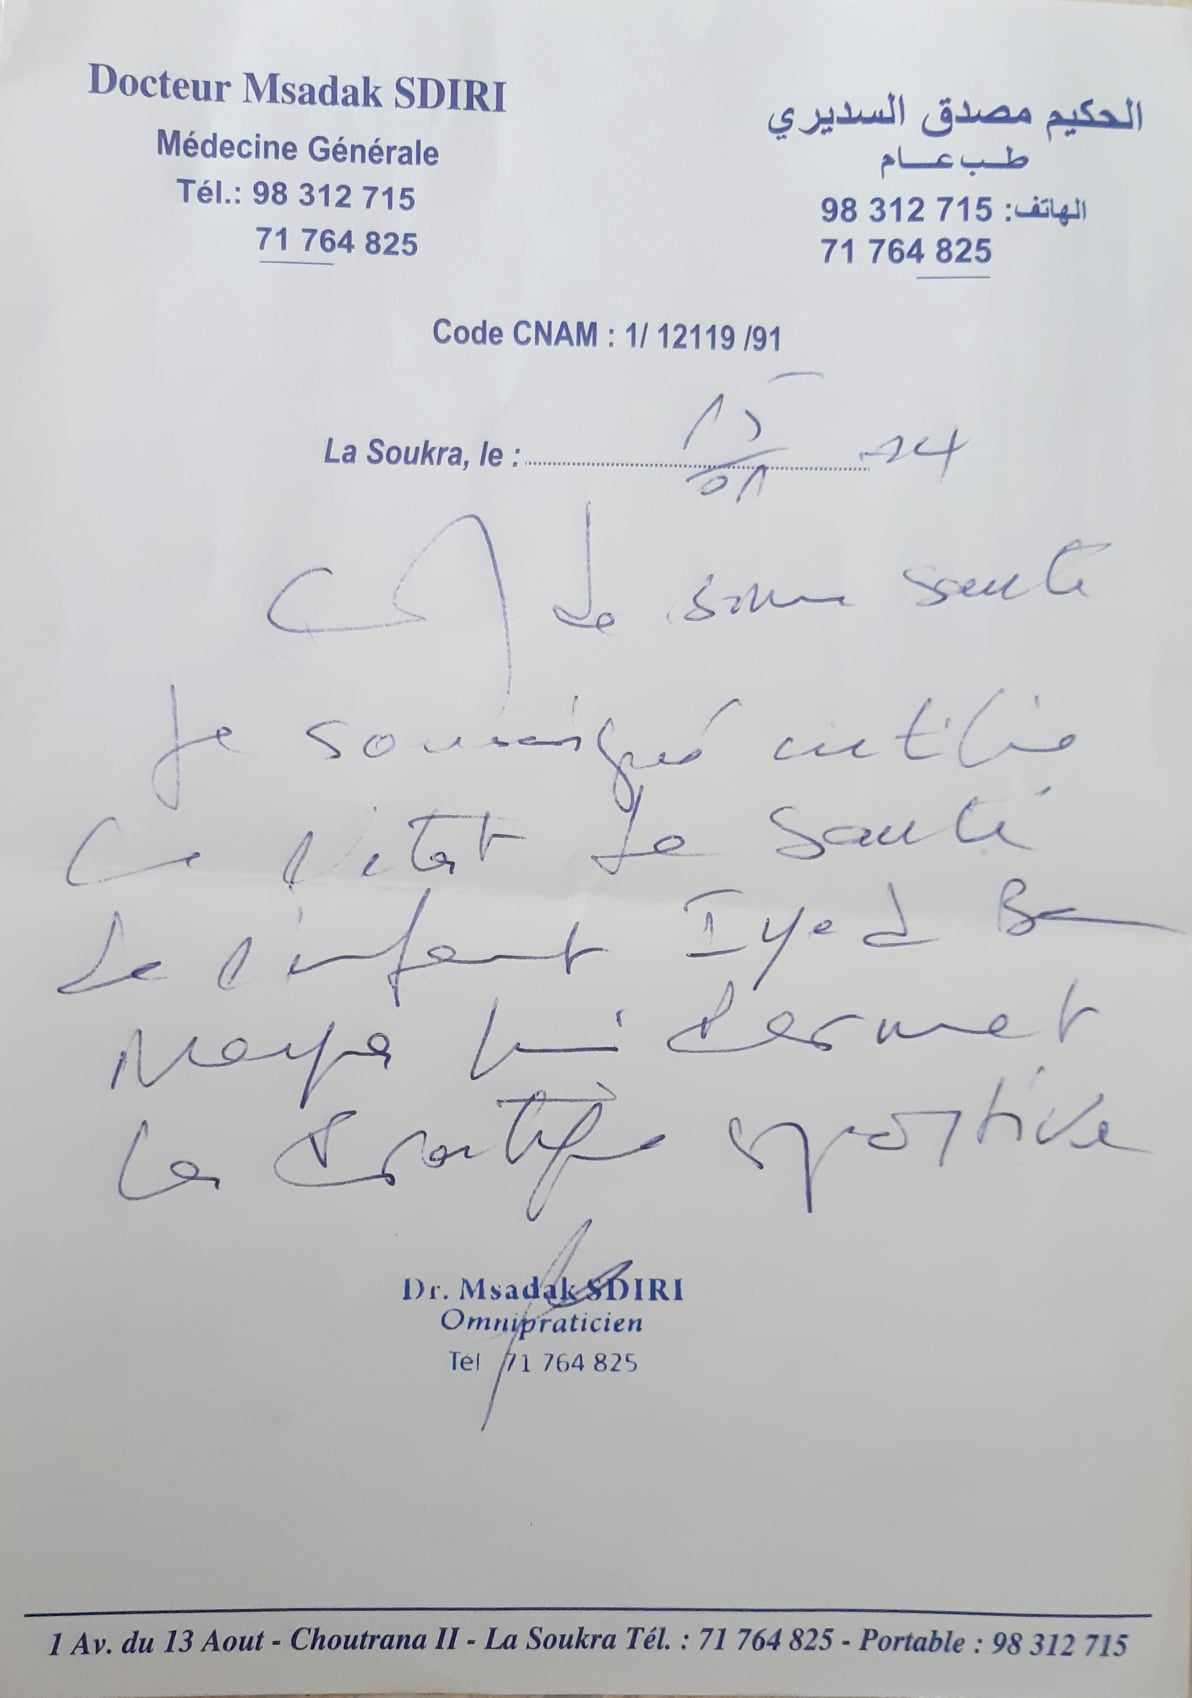 Docteur Msadak SDIRI
Médecine Générale
Tél.: 98 312 715
71 764 825
الحكيم مصدق السديري
طب عام
الهاتف: 98 312 715
71 764 825
Code CNAM : 1/ 12119 /91
La Soukra, le : 15/01
de bonne santé
Je soussigné certifie
l'état de santé
de l'enfant Iyed Ben
lui permet
la pratique sportive
Dr. Msadak SDIRI
Omnipraticien
Tel 71 764 825
1 Av. du 13 Aout - Choutrana II - La Soukra Tél. : 71 764 825 - Portable : 98 312 715